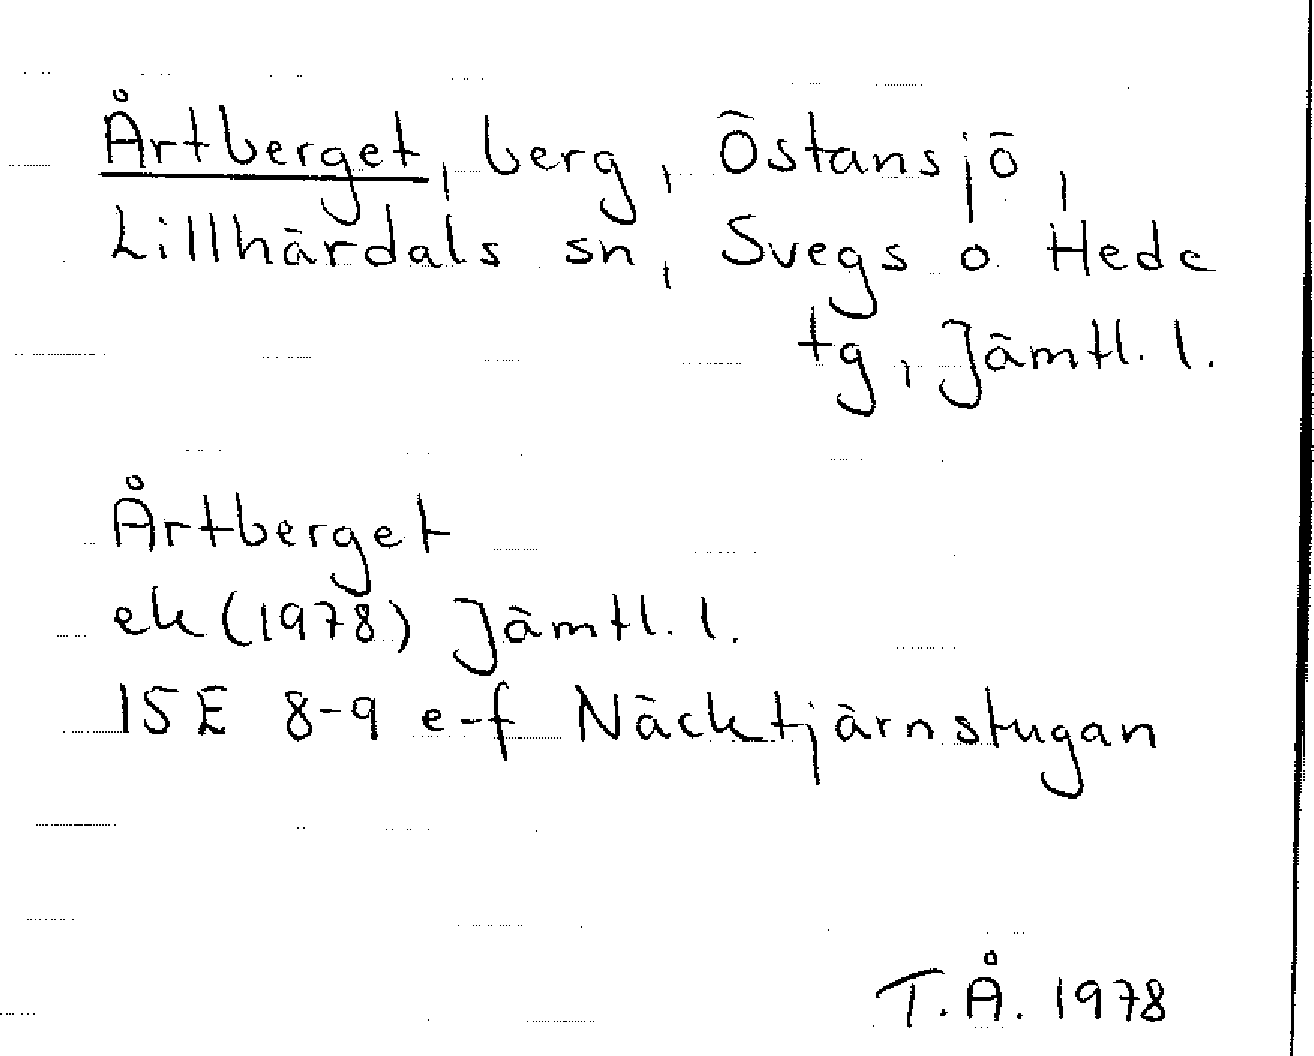 Årtberget, berg, Östansjö,
Lillhärdals sn, Svegs o Hede
tg, Jämtl. l.
Årtberget
ek (1978) Jämtl. l.
15E 8-9 e-f Näcktjärnstugan
T.Å. 1978